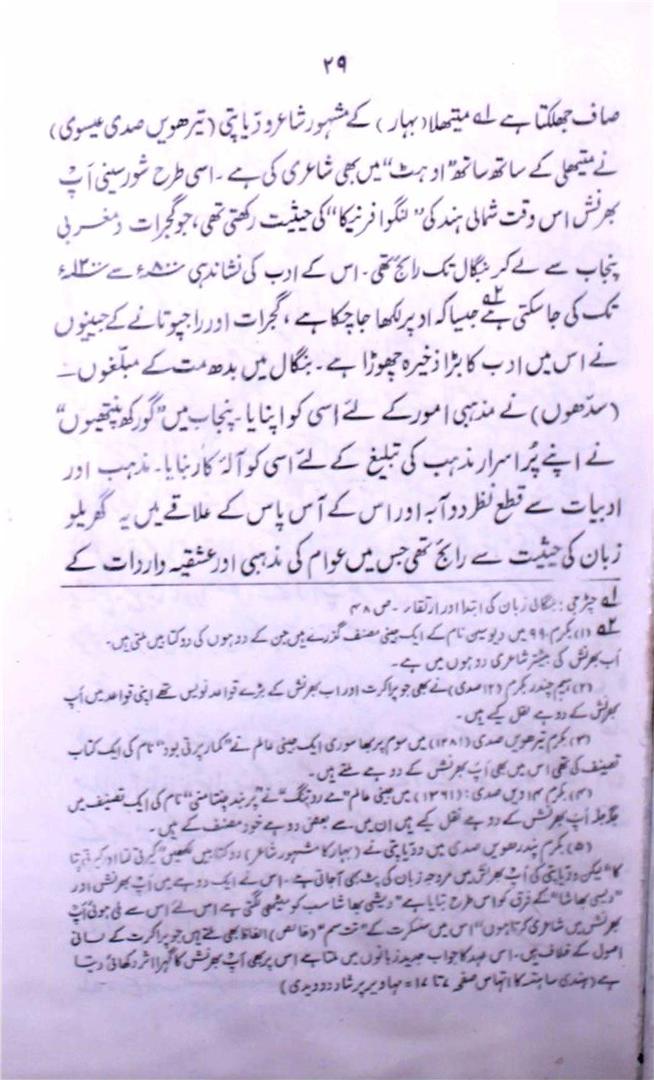 ۲۹
صاف جھلکتا ہے لہ میتھلا (بہار) کے مشہور شاعر ودّیاپتی (تیرھویں صدی عیسوی)
نے میتھلی کے ساتھ ساتھ "اوہٹ" میں بھی شاعری کی ہے۔ اسی طرح شورسینی اَپ
بھرنش اس وقت شمالی ہند کی "لنگوا فرنیکا" کی حیثیت رکھتی تھی، جو گجرات و مغربی
پنجاب سے لے کر بنگال تک رائج تھی۔ اس کے ادب کی نشاندہی ۸۰۰ء سے ۱۳۰۰ء
تک کی جاسکتی ہے ۲ہ جیسا کہ اوپر لکھا جاچکا ہے، گجرات اور راجپوتانے کے جینیوں
نے اس میں ادب کا بڑا ذخیرہ چھوڑا ہے۔ بنگال میں بدھ مت کے مبلّغوں
(سدّھوں) نے مذہبی امور کے لئے اسی کو اپنایا۔ پنجاب میں "گورکھ پنتھیوں"
نے اپنے پُراسرار مذہب کی تبلیغ کے لئے اسی کو آلۂ کار بنایا۔ مذہب اور
ادبیات سے قطع نظر دوآبہ اور اس کے آس پاس کے علاقے میں یہ گھریلو
زبان کی حیثیت سے رائج تھی جس میں عوام کی مذہبی اور عشقیہ واردات کے
۱ہ چٹرجی: بنگالی زبان کی ابتدا اور ارتقاء۔ ص ۴۸
۲ہ (۱) بکرم ۹۹۰ میں دیوسین نام کے ایک جینی مصنف گزرے ہیں جن کے دوہوں کی دو کتابیں ملتی ہیں۔
اَپ بھرنش کی بیشتر شاعری دوہوں میں ہے۔
(۲) ہیم چندر بکرم (۱۲ صدی) نے بھی جو پراکرت اور اپ بھرنش کے بڑے قواعد نویس تھے اپنی قواعد میں اَپ
بھرنش کے دوہے نقل کیے ہیں۔
(۳) بکرم تیرھویں صدی (۱۲۴۱) میں سوم پربھا سوری ایک جینی عالم نے "کمارپرتی بودھ" نام کی ایک کتاب
تصنیف کی تھی اس میں بھی اَپ بھرنش کے دوہے ملتے ہیں۔
(۴) بکرم ۱۴ ویں صدی: (۱۳۶۱) میں جینی عالم "مے روتنگ" نے "پربندچنتامنی" نام کی ایک تصنیف میں
جگہ جگہ اَپ بھرنش کے دوہے نقل کیے ہیں ان میں سے بعض دوہے خود مصنف کے ہیں۔
(۵) بکرم پندرھویں صدی میں ودّیاپتی نے (بہار کا مشہور شاعر) دو کتابیں لکھیں "کیرتی لتا اور کیرتی پتا
کا" لیکن ودّیاپتی کی اَپ بھرنش میں مروجہ زبان کی پٹ بھی آجاتی ہے۔ اس نے ایک دوہے میں اَپ بھرنش اور
"دیسی بھاشا" کے فرق کو اس طرح بتایا ہے "دیشی بھاشا سب کو میٹھی لگتی ہے اس لئے اس سے ملی ہوئی اَپ
بھرنش میں شاعری کرتا ہوں" اس میں سنسکرت کے "تت سم" (خالص) الفاظ بھی ملتے ہیں جو پراکرت کے لسانی
اصول کے خلاف ہیں۔ اس عہد کا جواب جدید زبانوں میں ملتا ہے اس پر بھی اَپ بھرنش کا گہرا اثر دکھائی دیتا
ہے (ہندی ساہتیہ کا اتہاس صفحہ ۷ تا ۱۷ = مہاویر پرشاد دوویدی)